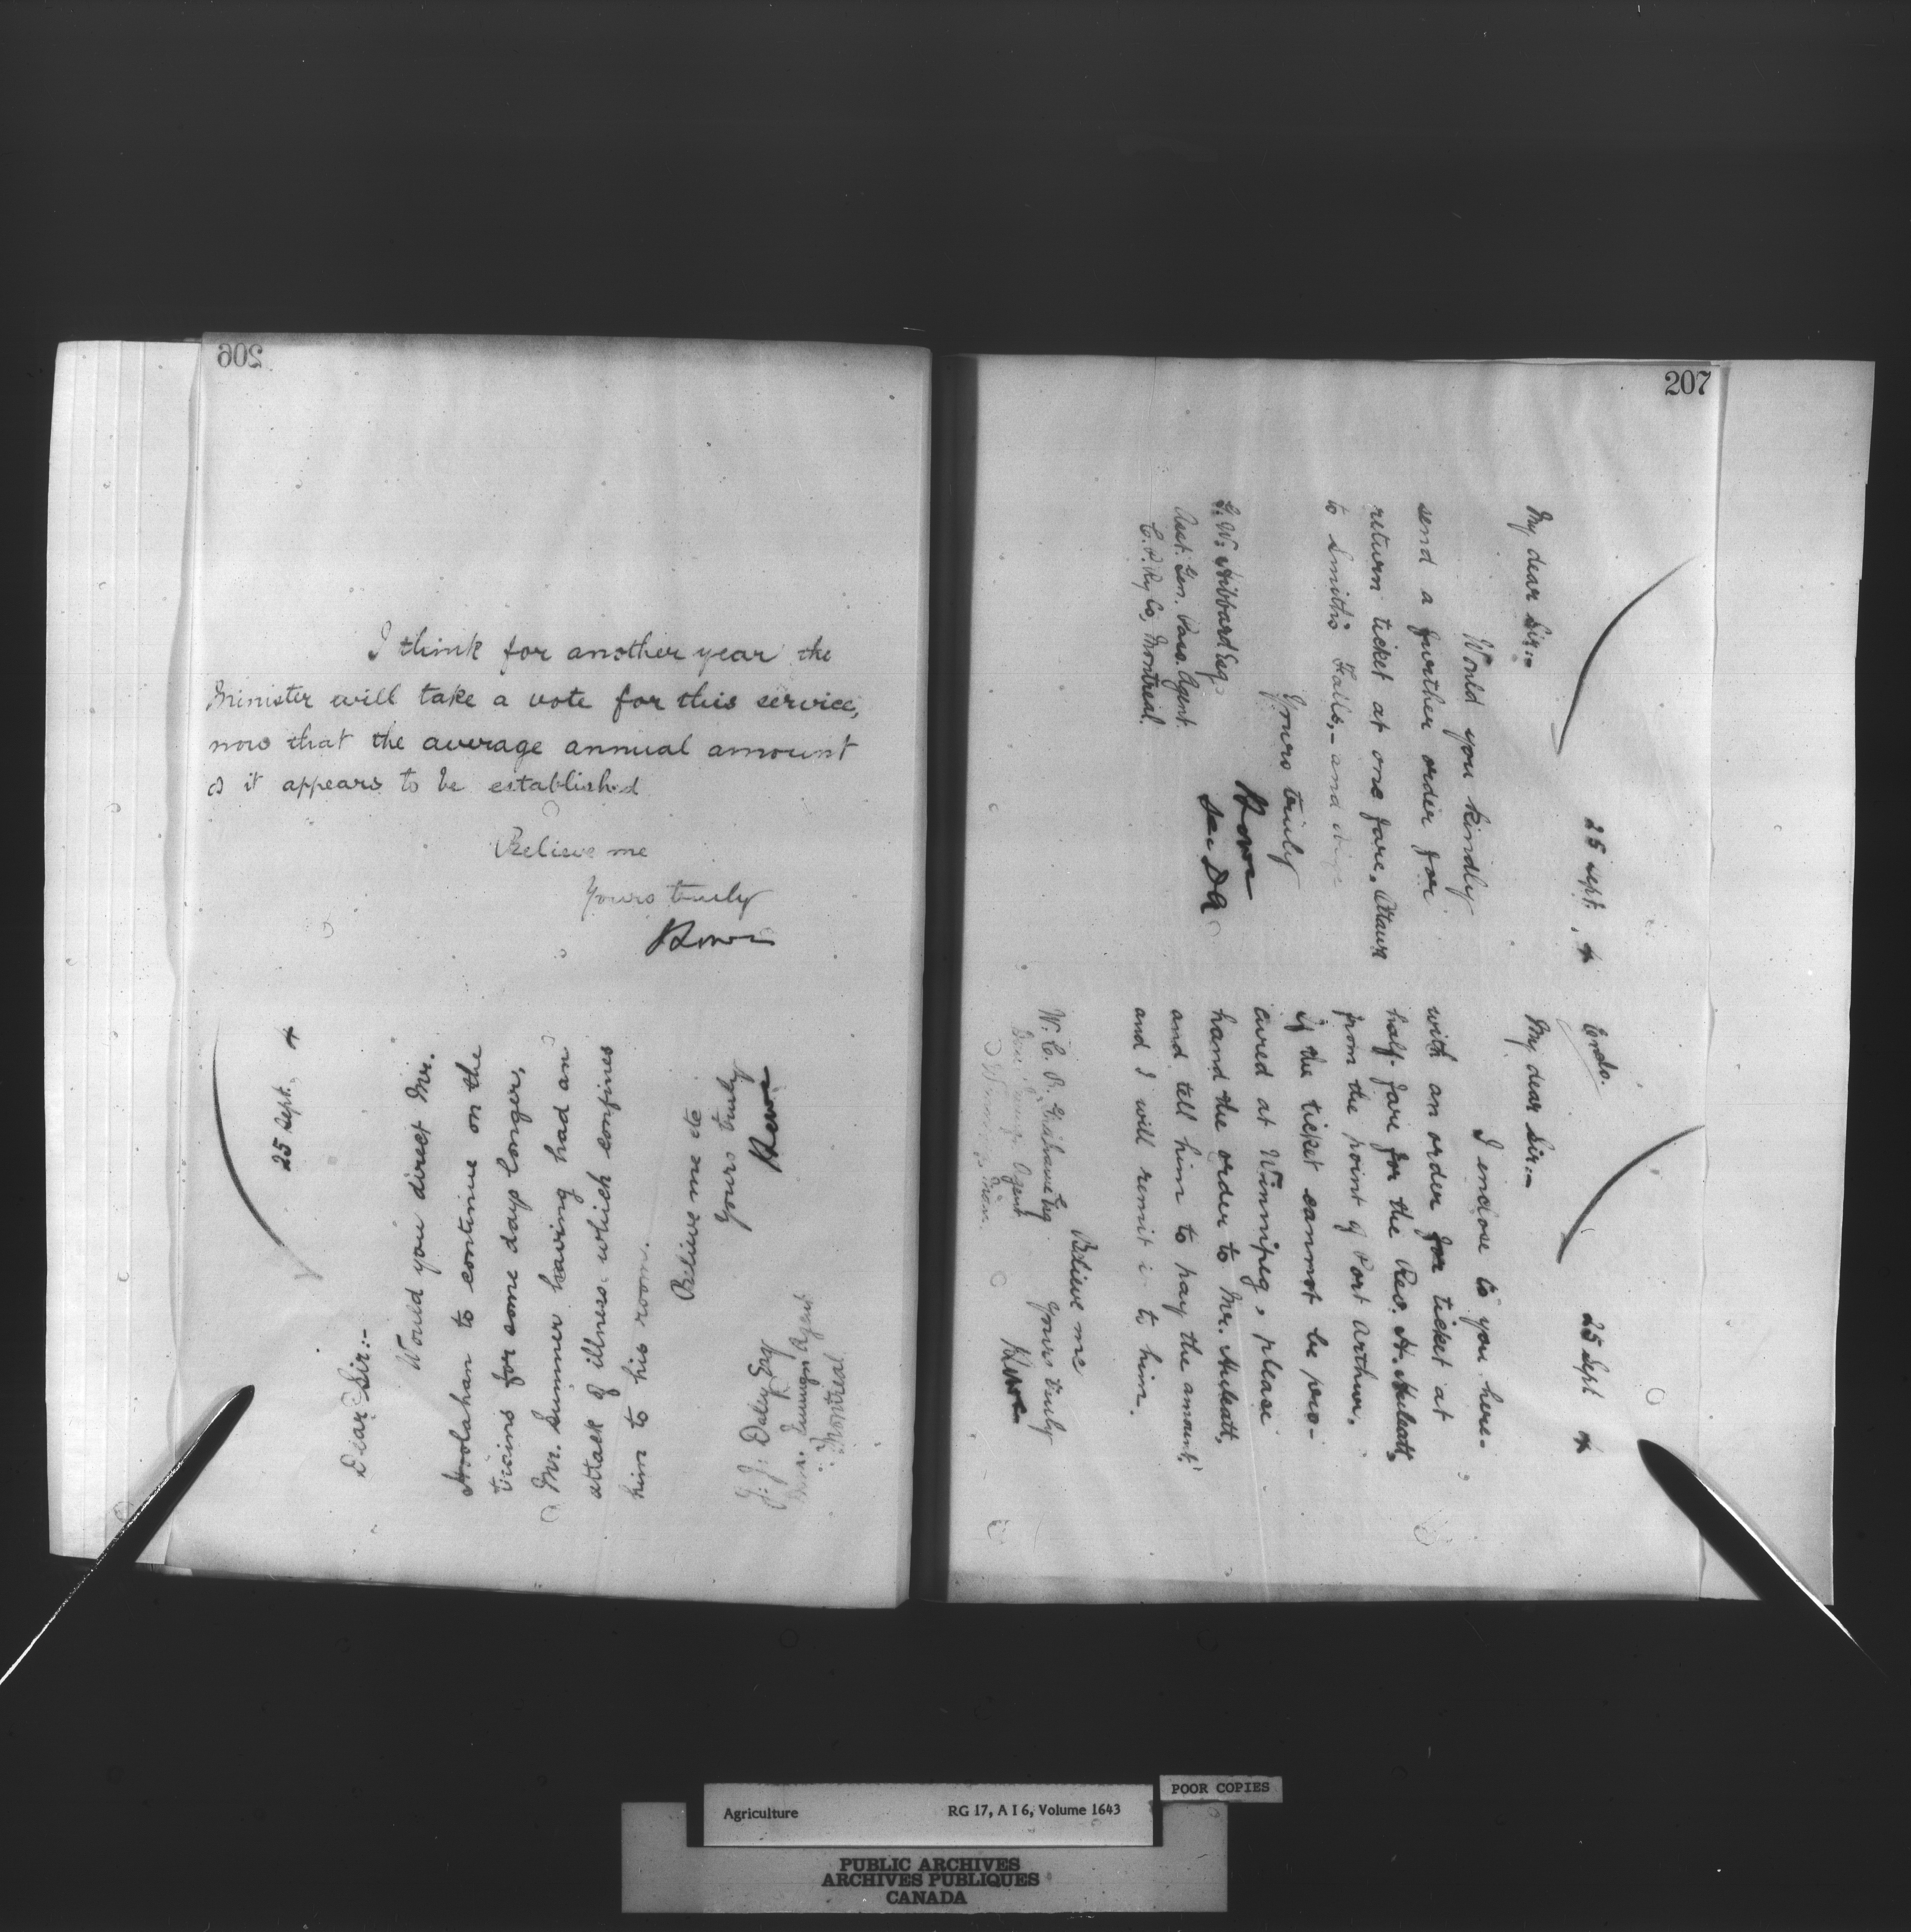 206
I think for another year the
Minister will take a vote for this service,
now that the average annual amount
of it appears to be established
Believe me
Yours truly
25 Sept. 4
Dear Sir:-
Would you direct Mr.
Hoolahan to continue on the
trains for some days longer,
Mr. Sumner having had an
attack of illness which confines
him to his room.
Believe me etc
Yours truly
J. J. Daley Esq
Dom. Immign Agent
Montreal
207
25 Sept. 4
My dear Sir:-
Would you kindly
send a further order for
return ticket at one fare, Ottawa
to Smith's Falls,- and
Yours truly
Sec D A
G. W. Hibbard Esq.
Asst. Gen. Pass. Agent.
C. P. Ry Co, Montreal.
25 Sept 4
Enclo.
My dear Sir:-
I enclose to you here-
with an order for ticket at
half-fare for the Rev. H.
from the point of Port Arthur.
If the ticket cannot be pro-
cured at Winnipeg, please
hand the order to Mr.
and tell him to pay the amount,
and I will remit it to him.
Believe me
Yours truly
W. C. B. Grahame Esq
Dom. Immign Agent
Winnipeg Man.
POOR COPIES
Agriculture RG 17, A I 6, Volume 1643
PUBLIC ARCHIVES
ARCHIVES PUBLIQUES
CANADA